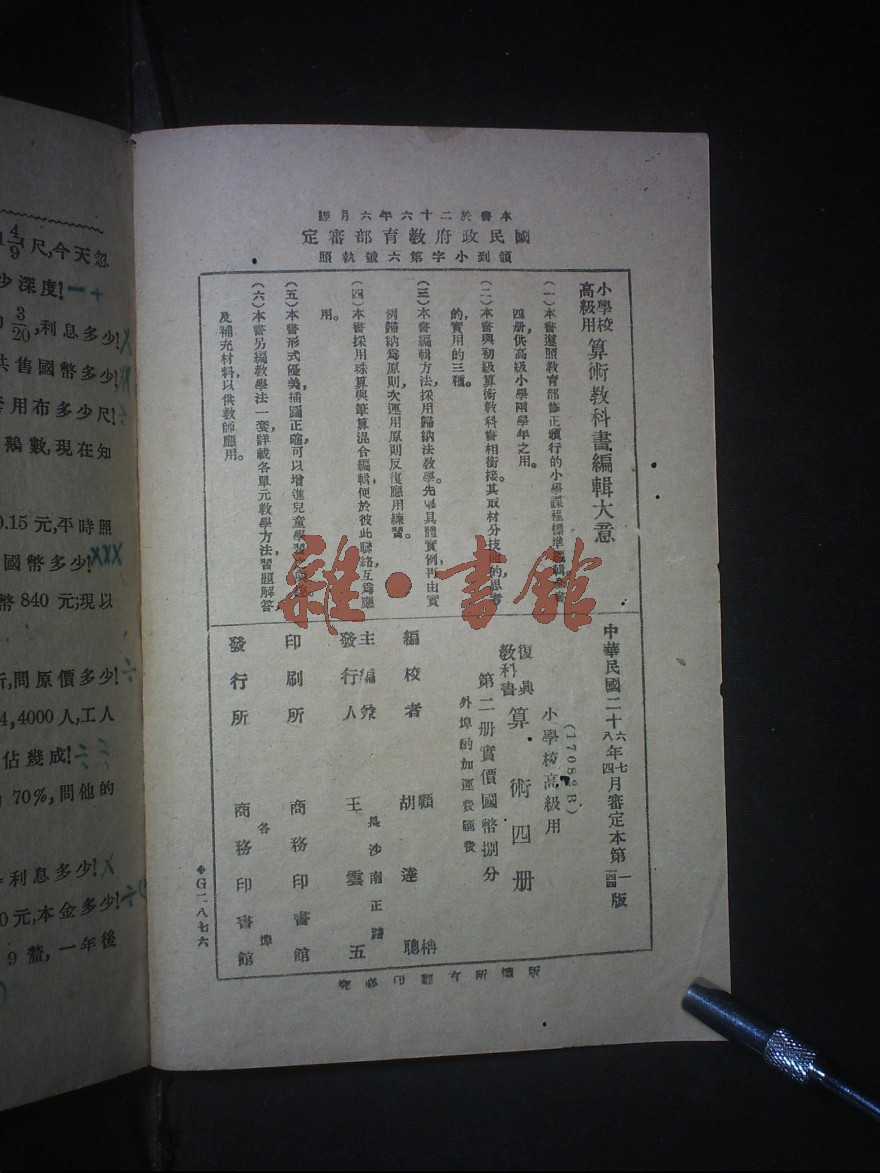 本書於二十六年六月經
國民政府教育部審定
領到小字第六號執照
小學校高級用
算術教科書編輯大意
(一)本書遵照教育部修正頒行的小學課程標準編輯全書
四册,供高級小學兩學年之用。
(二)本書與初級算術教科書相銜接。其取材分技能的,思考
的,實用的三種。
(三)本書編輯方法,採用歸納法教學。先舉具體實例,再由實
例歸納爲原則,次運用原則反復應用練習。
(四)本書採用珠算與筆算混合編輯,便於彼此聯絡,互爲應
用。
(五)本書形式優美,插圖正確,可以增進兒童學習
(六)本書另編教學法一套,詳載各單元教學方法,習題解答,
及補充材料,以供教師應用。
中華民國二十六年七月審定本第一版
中華民國二十八年四月審定本第 版
(1708 B)
小學校高級用
復興教科書
算術四册
第二册實價國幣捌分
外埠酌加運費匯費
編校者 顧 柟
胡達聰
主編兼發行人 王雲五
長沙南正路
印刷所 商務印書館
發行所 商務印書館
各埠
版權所有翻印必究
◆G二八七六
雜·書館
4/9尺,今天忽
少深度!
3/20,利息多少!
共售國幣多少!
用布多少尺!
鵝數,現在知
0.15元,平時照
國幣多少!
幣840元;現以
斤,問原價多少!
4,4000人,工人
佔幾成!
70%,問他的
利息多少!
0元,本金多少!
9釐,一年後